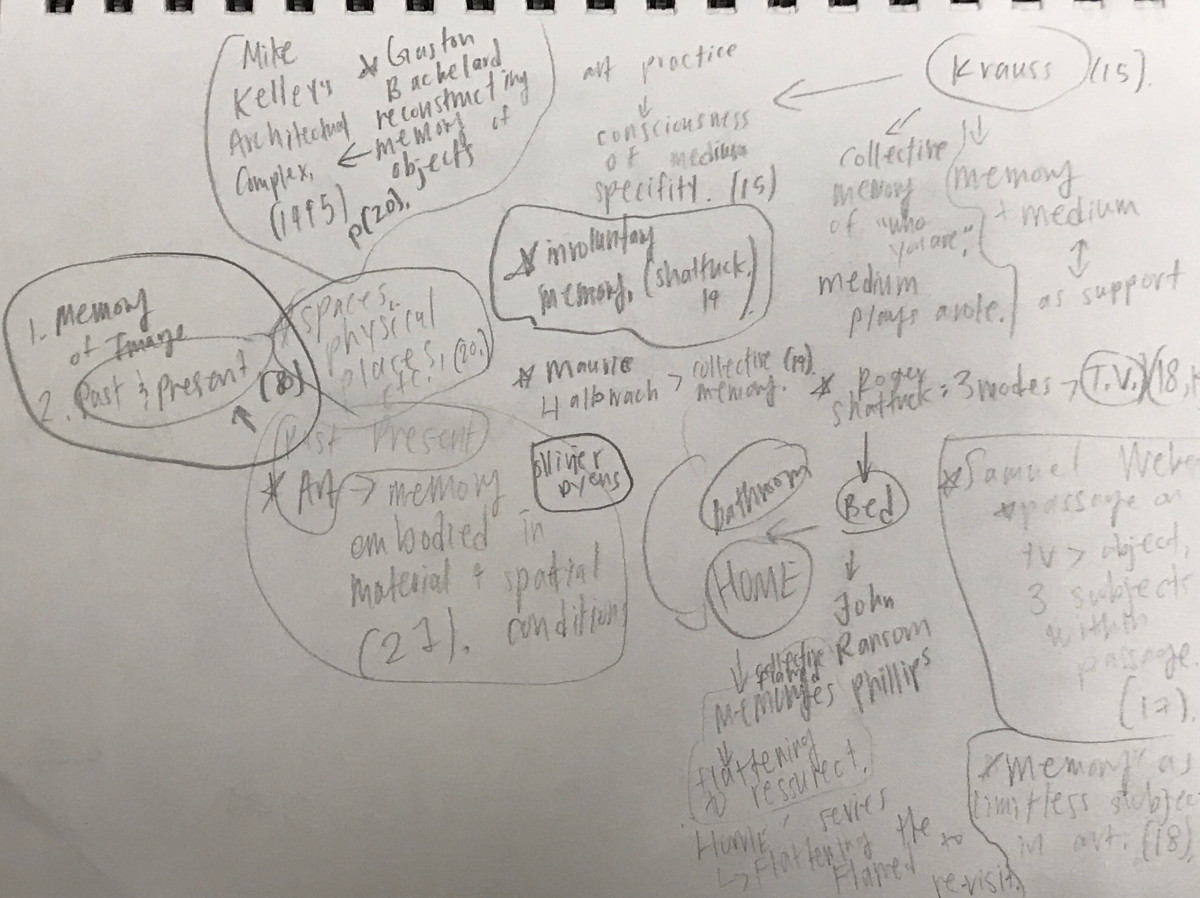 Mike
Kelley's
Architectual
Complex,
(1995)
* Gaston
Bachelard
reconstructing
memory of
objects
p(20).
art practice
consciousness
of medium
specifity. (15)
Krauss (15).
collective
memory
of "who
you are".
medium
plays a role.
memory
+ medium
as support
* involuntary
memory, (shattuck.
19)
1. Memory
of Image
2. Past & present (80)
* spaces,
physical
places, (20.)
etc.
* Maurice
Halbwach > collective (19).
memory.
* Roger
Shattuck: 3 modes → T.V. (18,
Past Present
* Art → memory
embodied in
material + spatial
(27). conditions
Ollivier
Dyens
Bathroom
Bed
HOME
John
Ransom
Phillips
collective
memories
flattening
to ressurect.
'Home' series
↳ Flattening the
Flamed to
re-visit.
* Samuel Webe
* passage on
TV > object,
3 subjects
within
passage
(17).
* "Memory" as
limitless subjec
in art. (18)